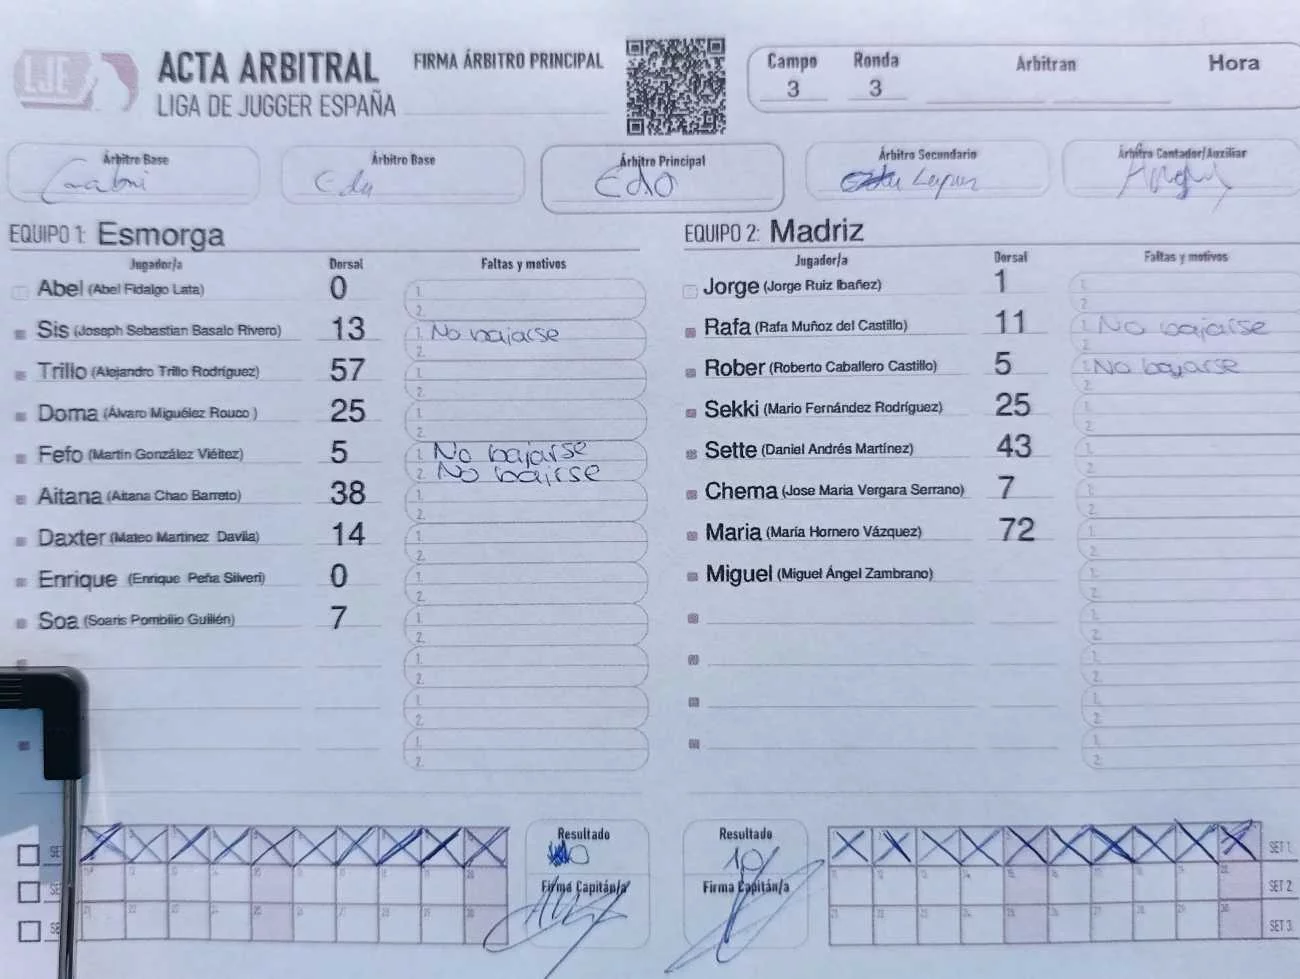 LJE
ACTA ARBITRAL
LIGA DE JUGGER ESPAÑA
FIRMA ÁRBITRO PRINCIPAL
Campo Ronda Arbitran Hora
3 3
Árbitro Base Árbitro Base Árbitro Principal Árbitro Secundario Árbitro Contador/Auxiliar
Edu Edo
EQUIPO 1: Esmorga
Jugador/a Dorsal Faltas y motivos
Abel (Abel Fidalgo Lata) 0 1.
2.
Sis (Joseph Sebastian Basalo Rivero) 13 1. No bajarse
2.
Trillo (Alejandro Trillo Rodríguez) 57 1.
2.
Doma (Álvaro Miguélez Rouco ) 25 1.
2.
Fefo (Martín González Viéitez) 5 1. No bajarse
2. No bajrse
Aitana (Aitana Chao Barreto) 38 1.
2.
Daxter (Mateo Martinez Davila) 14 1.
2.
Enrique (Enrique Peña Silveri) 0 1.
2.
Soa (Soaris Pombilio Guillén) 7 1.
2.
1.
2.
1.
2.
1.
2.
EQUIPO 2: Madriz
Jugador/a Dorsal Faltas y motivos
Jorge (Jorge Ruiz Ibañez) 1 1.
2.
Rafa (Rafa Muñoz del Castillo) 11 1. No bajarse
2.
Rober (Roberto Caballero Castillo) 5 1. No bajarse
2.
Sekki (Mario Fernández Rodríguez) 25 1.
2.
Sette (Daniel Andrés Martínez) 43 1.
2.
Chema (Jose Maria Vergara Serrano) 7 1.
2.
Maria (María Hornero Vázquez) 72 1.
2.
Miguel (Miguel Ángel Zambrano) 1.
2.
1.
2.
1.
2.
1.
2.
1.
2.
Resultado
Firma Capitán/a
Resultado
10
Firma Capitán/a
SET 1
SET 2
SET 3